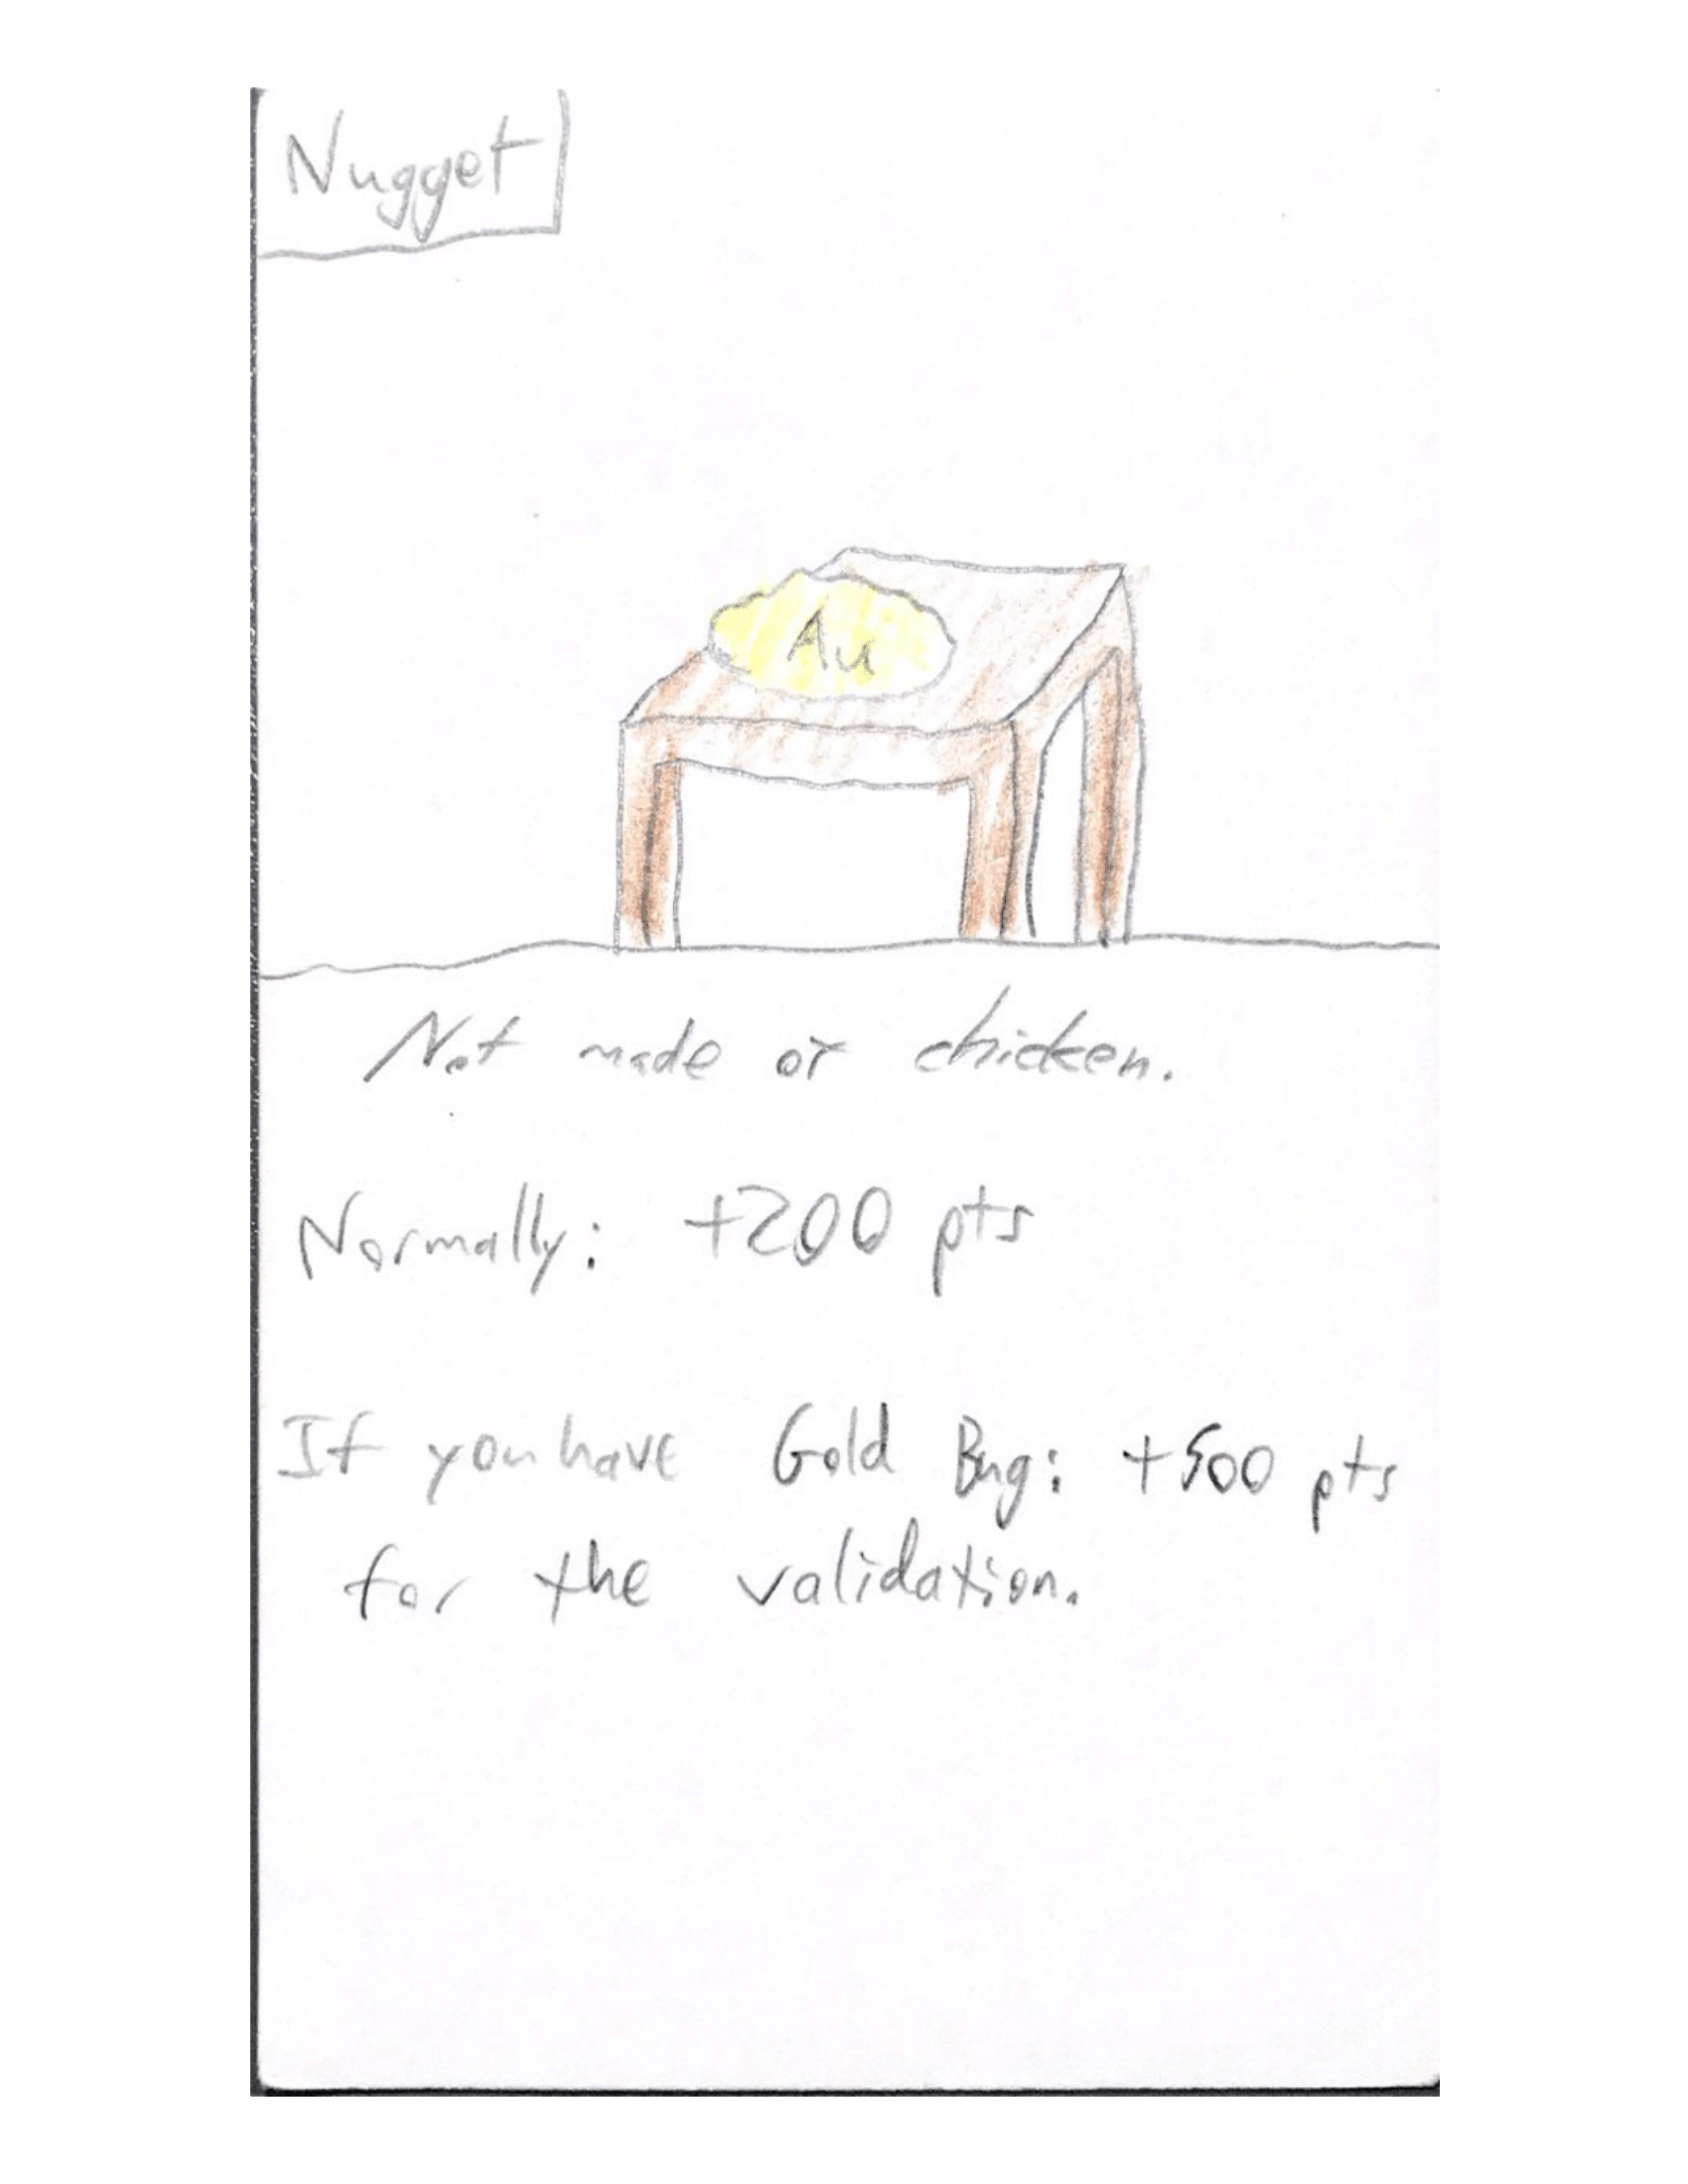 Nugget
Au
Not made of chicken.
Normally: +200 pts
If you have Gold Bug: +500 pts
for the validation.